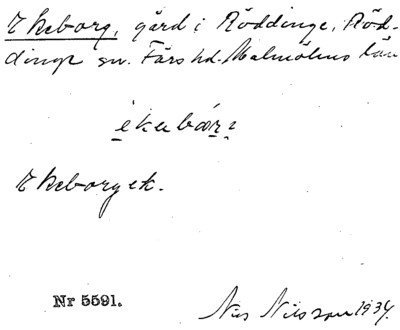 Ekeborg, gård i Röddinge, Röd-
dinge sn. Färs hd. Malmöhus län
Ekeborg ek.
Nr 5591.
Nils Nilsson 1934.